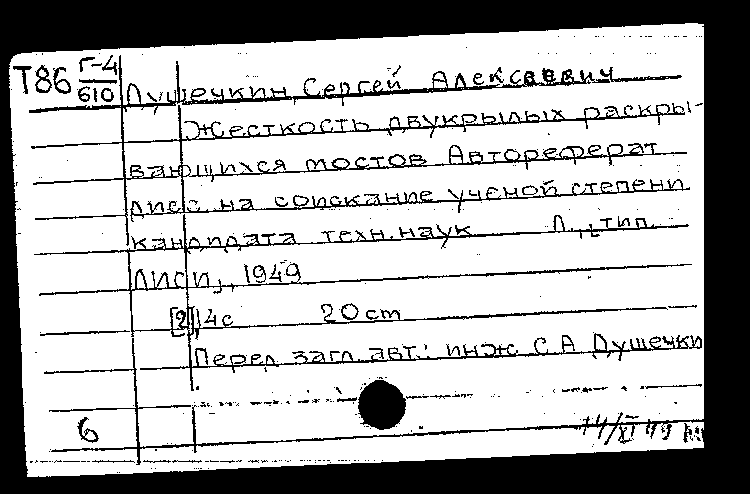 Т86 Г-4/610 Душечкин, Сергей Алексеевич
Жесткость двукрылых раскры-
вающихся мостов Автореферат
дисс. на соискание ученой степени
кандидата техн. наук Л., тип.
ЛИСИ, 1949
[2], 4с 20 cm
Перед загл. авт.: инж С.А Душечки
6 14/XI 49